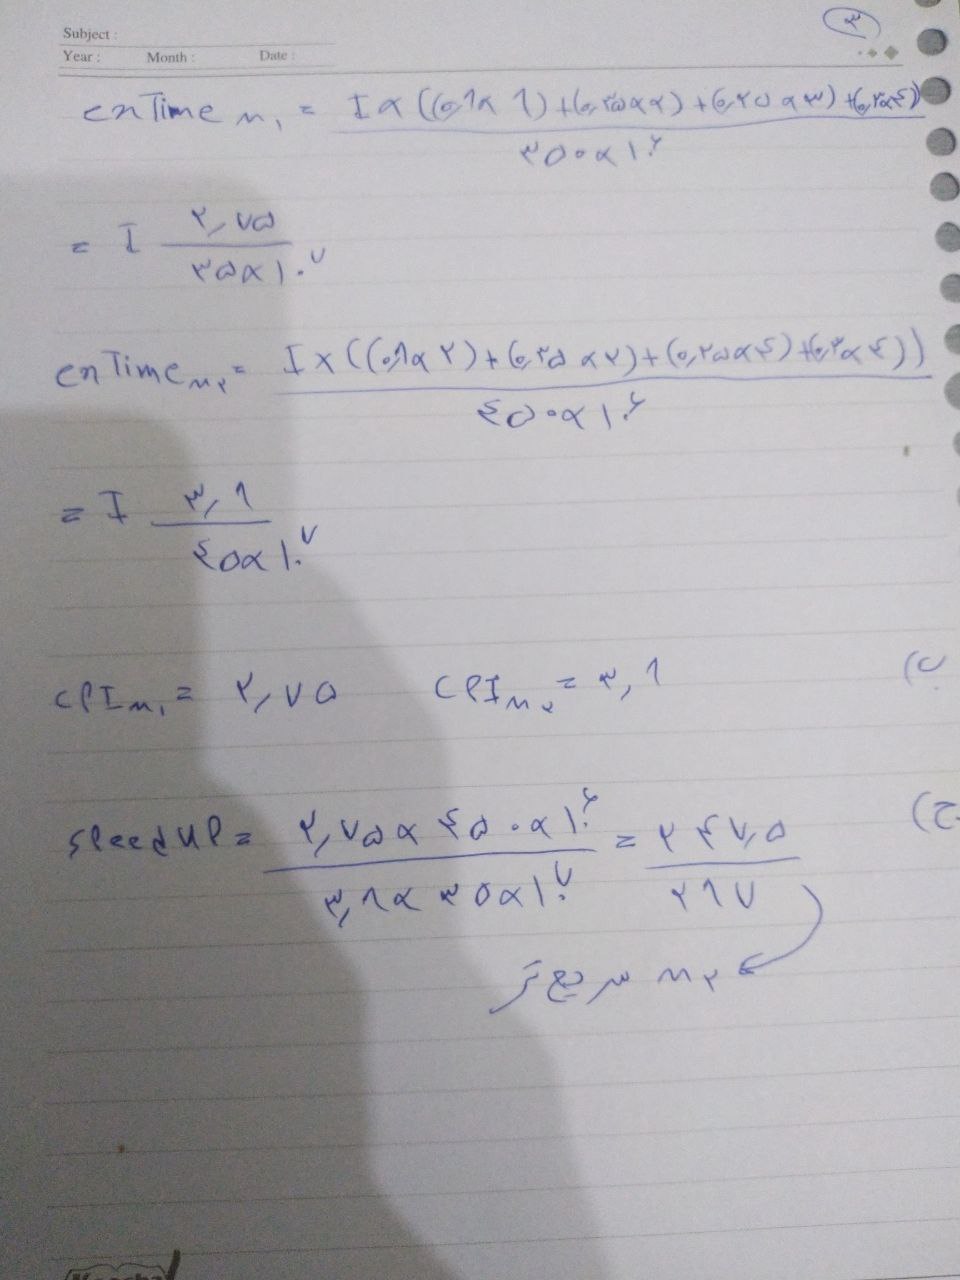 Subject :
۳
Year : Month : Date :
exTime M۱ = I × ((۰,۱ × ۱) + (۰,۲۵ × ۲) + (۰,۲۵ × ۳) + (۰,۲ × ۴)
۳۵۰ × ۱۰۶
= I ۲,۷۵
۳۵ × ۱۰۷
exTime M۲ = I × ((۰,۱ × ۲) + (۰,۲۵ × ۲) + (۰,۲۵ × ۴) + (۰,۲ × ۴))
۴۵۰ × ۱۰۶
= I ۳,۱
۴۵ × ۱۰۷
CPI M۱ = ۲,۷۵ CPI M۲ = ۳,۱ (ب
speed UP = ۲,۷۵ × ۴۵۰ × ۱۰۶ = ۲۴۷,۵ (ج
۳,۱ × ۳۵ × ۱۰۷ ۲۱۷
M۲ سریع تر